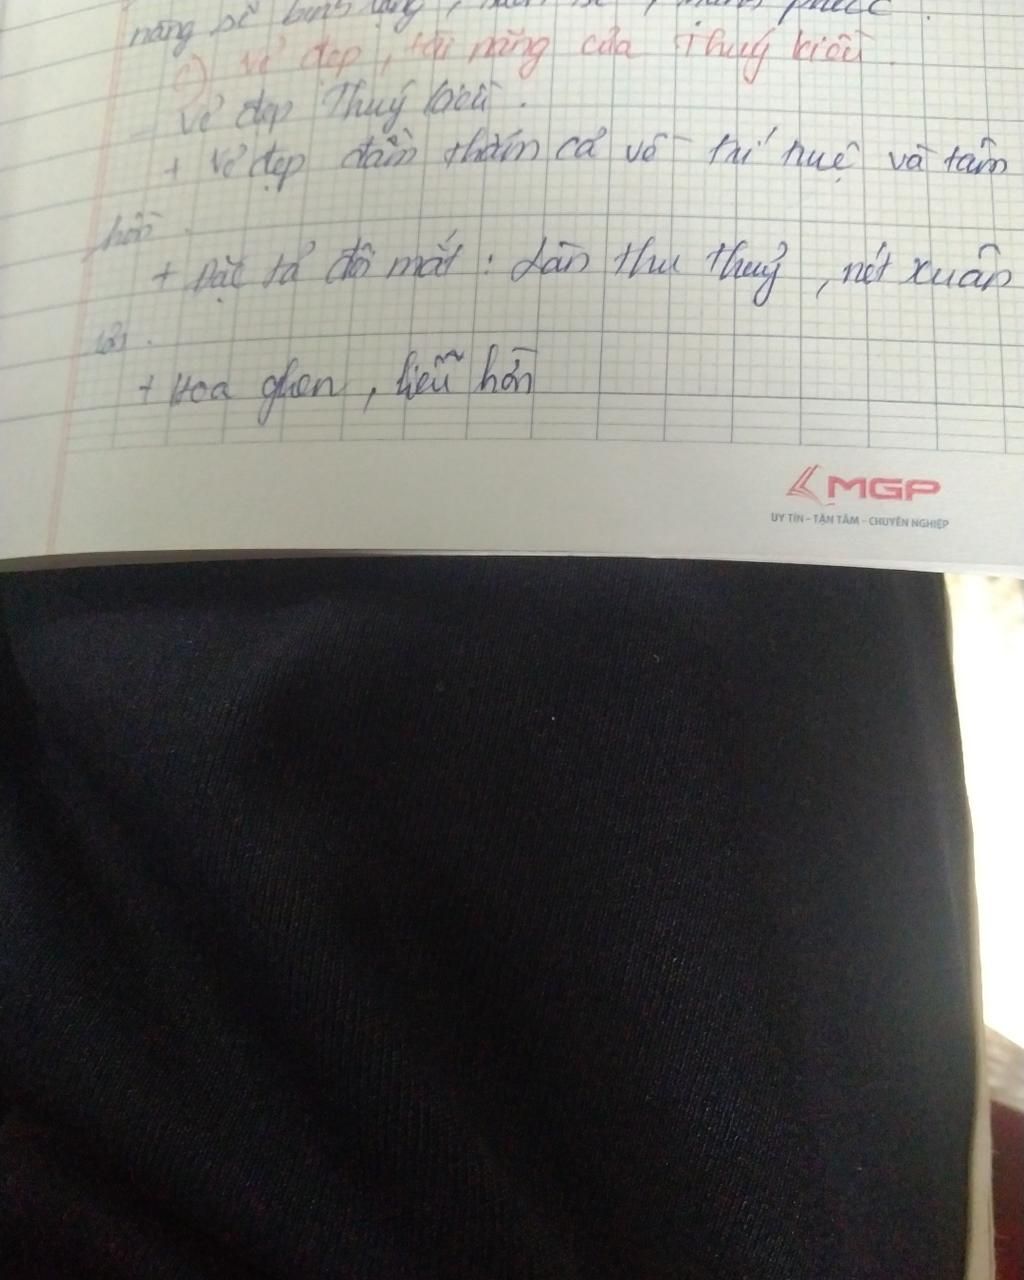 nàng sẽ bình lặng,
c) Vẻ đẹp, tài năng của Thuý Kiều.
- Vẻ đẹp Thuý Kiều.
+ Vẻ đẹp đằm thắm cả về trí huệ và tâm
hồn.
+ Đặc tả đôi mắt: Làn thu thuỷ, nét xuân
sơn.
+ Hoa ghen, liễu hờn
MGP
UY TÍN - TẬN TÂM - CHUYÊN NGHIỆP